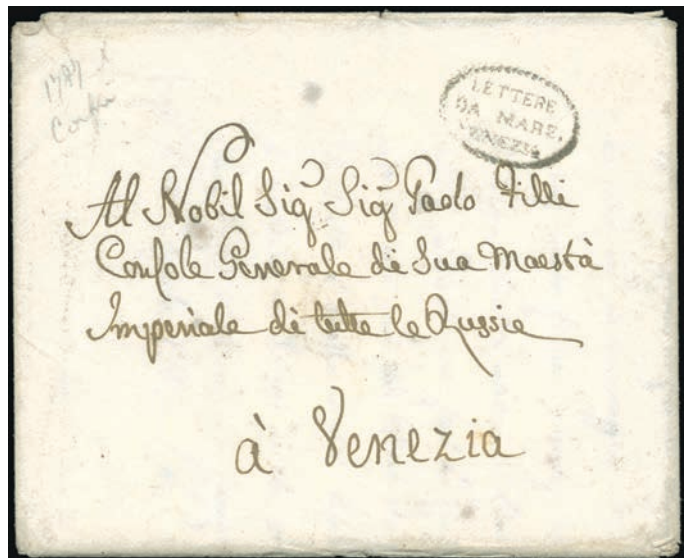 1797
Corfu
LETTERE
DA MARE.
VENEZIA
Al Nobil Sigr Sigr Paolo Tilli
Console Generale di Sua Maestà
Imperiale di tutte le Russie
à Venezia